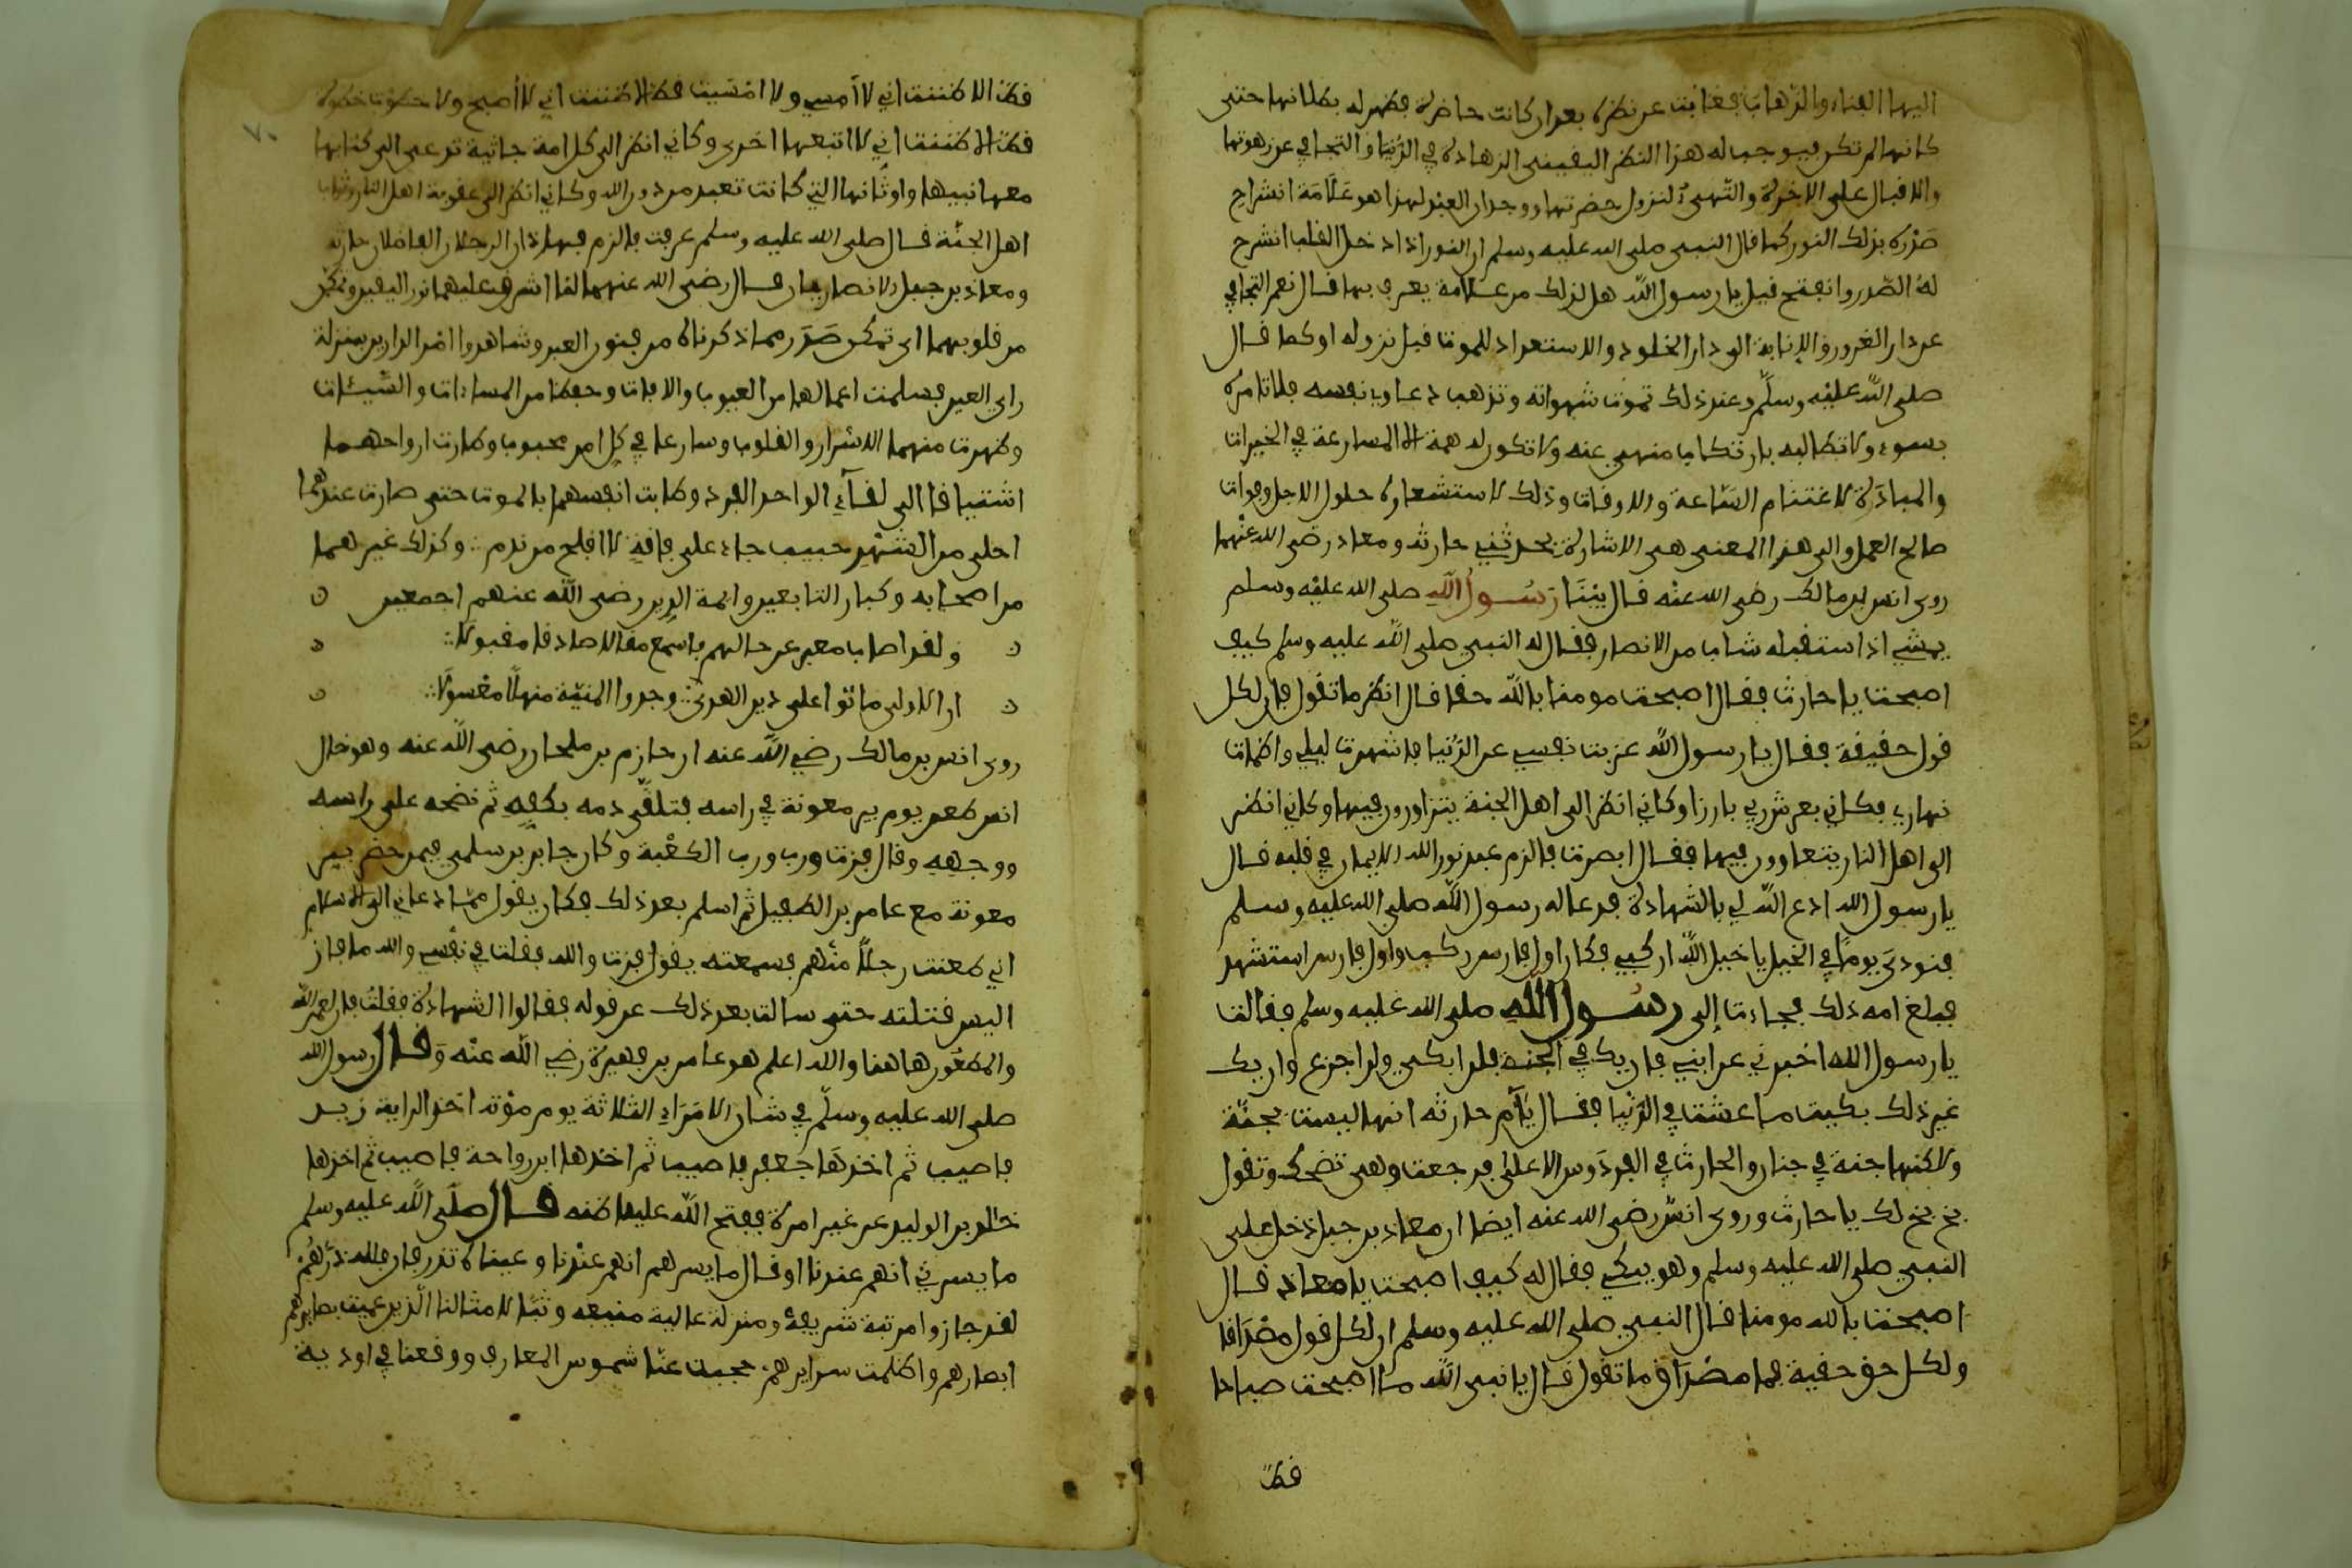 اليها الفناء والذهاب فغابت عن نظره بعد ان كانت حاضرة فظهر له بطلانها حتى
كانها لم تكن فيوجب له هذا النظر اليقيني الزهادة في الدنيا والتجافي عن زهوتها
والاقبال على الاخرة والتهيؤ لنزول حضرتها ووجدان العبد لهذا هو علامة انشراح
صدره بذلك النور كما قال النبي صلى الله عليه وسلم ان النور اذا دخل القلب انشرح
له الصدر وانفتح قيل يا رسول الله هل لذلك من علامة يعرف بها قال نعم التجافي
عن دار الغرور والانابة الى دار الخلود والاستعداد للموت قبل نزوله او كما قال
صلى الله عليه وسلم وعند ذلك تموت شهواته وتذهب دعاوي نفسه فلا تامره
بسوء ولا تطالبه بارتكاب منهي عنه ولا تكون له همة الا المسارعة في الخيرات
والمبادرة لاغتنام الساعة والاوقات وذلك لاستشعاره حلول الاجل وفوات
صالح العمل والى هذا المعنى هي الاشارة بحديثي حارثة ومعاذ رضي الله عنهما
روى انس بن مالك رضي الله عنه قال بينما رسول الله صلى الله عليه وسلم
يمشي اذ استقبله شاب من الانصار فقال له النبي صلى الله عليه وسلم كيف
اصبحت يا حارث فقال اصبحت مومنا بالله حقا قال انظر ما تقول فان لكل
قول حقيقة فقال يا رسول الله عزبت نفسي عن الدنيا فاسهرت ليلي واظمات
نهاري فكاني بعرش ربي بارزا وكاني انظر الى اهل الجنة يتزاورون فيها وكاني انظر
الى اهل النار يتعاوون فيها فقال ابصرت فالزم عبد نور الله الايمان في قلبه قال
يا رسول الله ادع الله لي بالشهادة فدعا له رسول الله صلى الله عليه وسلم
فنودي يوما في الخيل يا خيل الله اركبي فكان اول فارس ركب واول فارس استشهد
فبلغ امه ذلك فجاءت الى رسول الله صلى الله عليه وسلم فقالت
يا رسول الله اخبرني عن ابني فان يك في الجنة فلن ابكي ولن اجزع وان يك
غير ذلك بكيت ما عشت في الدنيا فقال يا ام حارثة انها ليست بجنة
ولاكنها جنة في جنان والحارث في الفردوس الاعلى فرجعت وهي تضحك وتقول
بخ بخ لك يا حارث وروى انس رضي الله عنه ايضا ان معاذ بن جبل دخل على
النبي صلى الله عليه وسلم وهو يبكي فقال له كيف اصبحت يا معاذ قال
اصبحت بالله مومنا قال النبي صلى الله عليه وسلم ان لكل قول مصداقا
ولكل حق حقيقة فما مصداق ما تقول قال يا نبي الله ما اصبحت صباحا
قط
قط الا ظننت اني لا امسي ولا امسيت قط الا ظننت اني لا اصبح ولا خطوت خطوة
قط الا ظننت اني لا اتبعها اخرى وكاني انظر الى كل امة جاثية تدعى الى كتابها
معها نبيها واوثانها التي كانت تعبد من دون الله وكاني انظر الى عقوبة اهل النار وثواب
اهل الجنة قال صلى الله عليه وسلم عرفت فالزم فهاذان الرجلان الفاضلان حارثة
ومعاذ بن جبل الانصاريان رضي الله عنهما لما اشرق عليهما نور اليقين وتمكن
من قلوبهما اي تمكن صدر مما ذكرناه من فنون العبر وشاهدوا امر الدارين بمنزلة
راي العين فسلمت اعمالهما من العيوب والافات وحفظا من المساءات والسيئات
وطهرت منهما الاسرار والقلوب وسارعا في كل امر محبوب وطارت ارواحهما
اشتياقا الى لقاء الواحد الفرد وطابت انفسهما بالموت حتى صارت عندهما
احلى من الشهد حبيب جاء على فاقة لا افلح من ندم وكذلك غيرهما
من اصحابه وكبار التابعين وايمة الدين رضي الله عنهم اجمعين
ولقد اصاب معبر عن حالهم فاسمع مقالا صادقا مقبولا
ان الاولى ماتوا على دين الهدى وجدوا المنية منهلا معسولا
روى انس بن مالك رضي الله عنه ان حازم بن ملحان رضي الله عنه وهو خال
انس طعن يوم بير معونة في راسه فتلقى دمه بكفه ثم نضحه على راسه
ووجهه وقال فزت ورب الكعبة وكان جابر بن سلمى فيمن حضر بير
معونة مع عامر بن الطفيل ثم اسلم بعد ذلك فكان يقول مما دعاني الى الاسلام
اني طعنت رجلا منهم فسمعته يقول فزت والله فقلت في نفسي والله ما فاز
اليس قتلته حتى سالت بعد ذلك عن قوله فقالوا الشهادة فقلت فاز لعمر الله
والمطعون هاهنا والله اعلم هو عامر بن فهيرة رضي الله عنه وقال رسول الله
صلى الله عليه وسلم في شان الامراء الثلاثة يوم موتة اخذ الراية زيد
فاصيب ثم اخذها جعفر فاصيب ثم اخذها ابن رواحة فاصيب ثم اخذها
خالد بن الوليد عن غير امرة ففتح الله عليه اظنه قال صلى الله عليه وسلم
ما يسرني انهم عندنا او قال ما يسرهم انهم عندنا وعيناه تذرفان فلله درهم
لقد حازوا مرتبة شريفة ومنزلة عالية منيفة وتبا لامثالنا الذين عميت بصايرهم
ابصارهم واظلمت سرايرهم حجبت عنا شموس المعارف ووقعنا في اودية